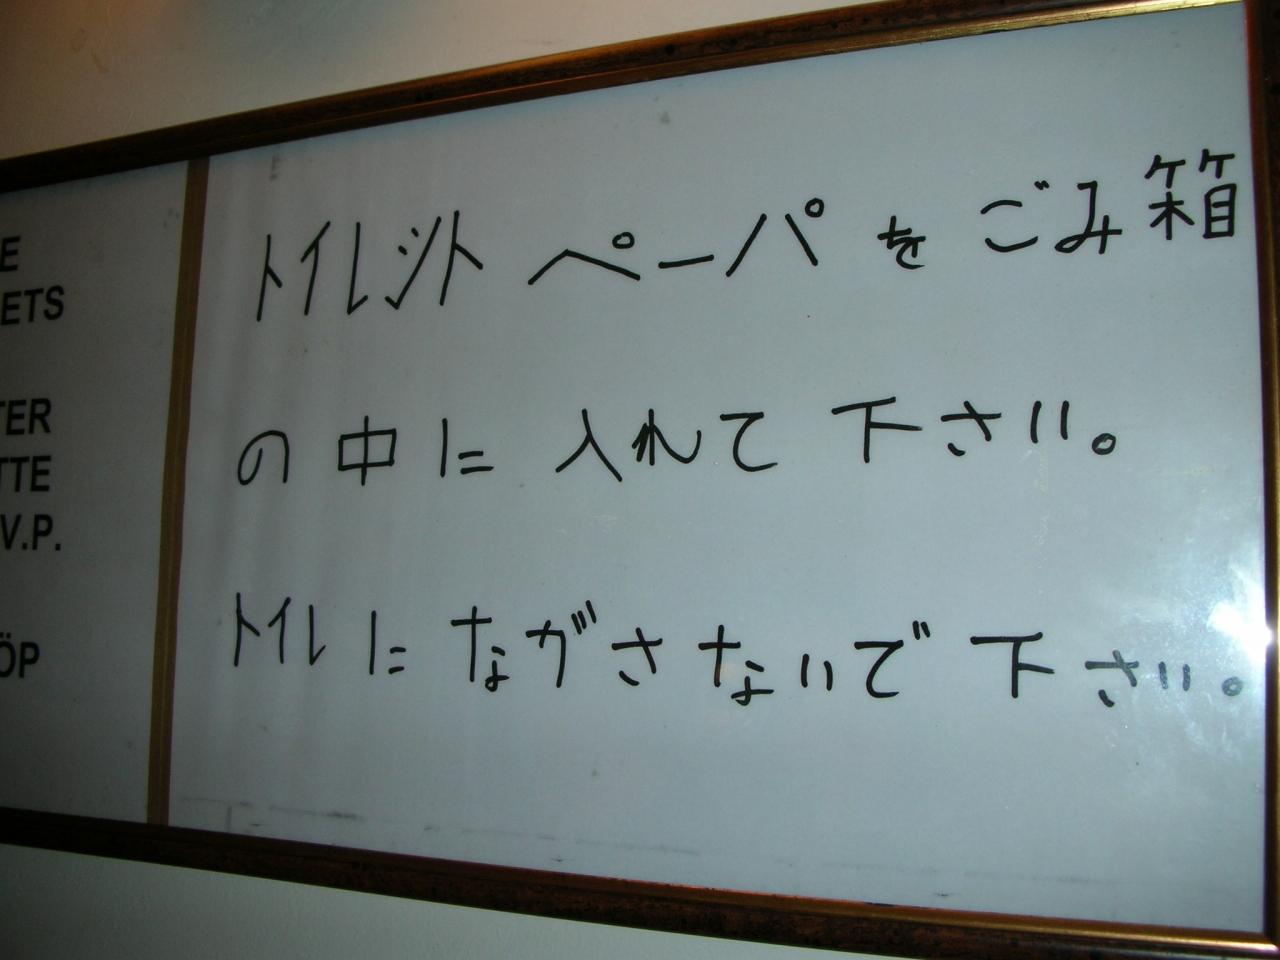 E
ETS
TER
TTE
V.P.
ÖP
トイレット ペーパ を ごみ箱
の 中 に 入れて 下さい。
トイレ に ながさ ないで 下さい。